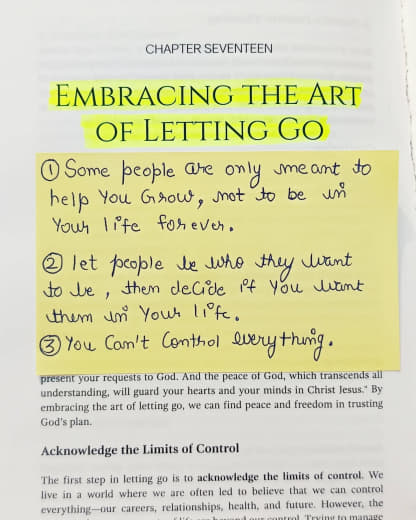 CHAPTER SEVENTEEN
EMBRACING THE ART
OF LETTING GO
① Some people are only meant to
help You Grow, not to be in
Your life forever.
② let people be who they want
to be, then decide if You want
them in Your life.
③ You Can't Control everything.
present your requests to God. And the peace of God, which transcends all
understanding, will guard your hearts and your minds in Christ Jesus." By
embracing the art of letting go, we can find peace and freedom in trusting
God's plan.
Acknowledge the Limits of Control
The first step in letting go is to acknowledge the limits of control. We
live in a world where we are often led to believe that we can control
everything—our careers, relationships, health, and future. However, the
of life are beyond our control. Trying to manage